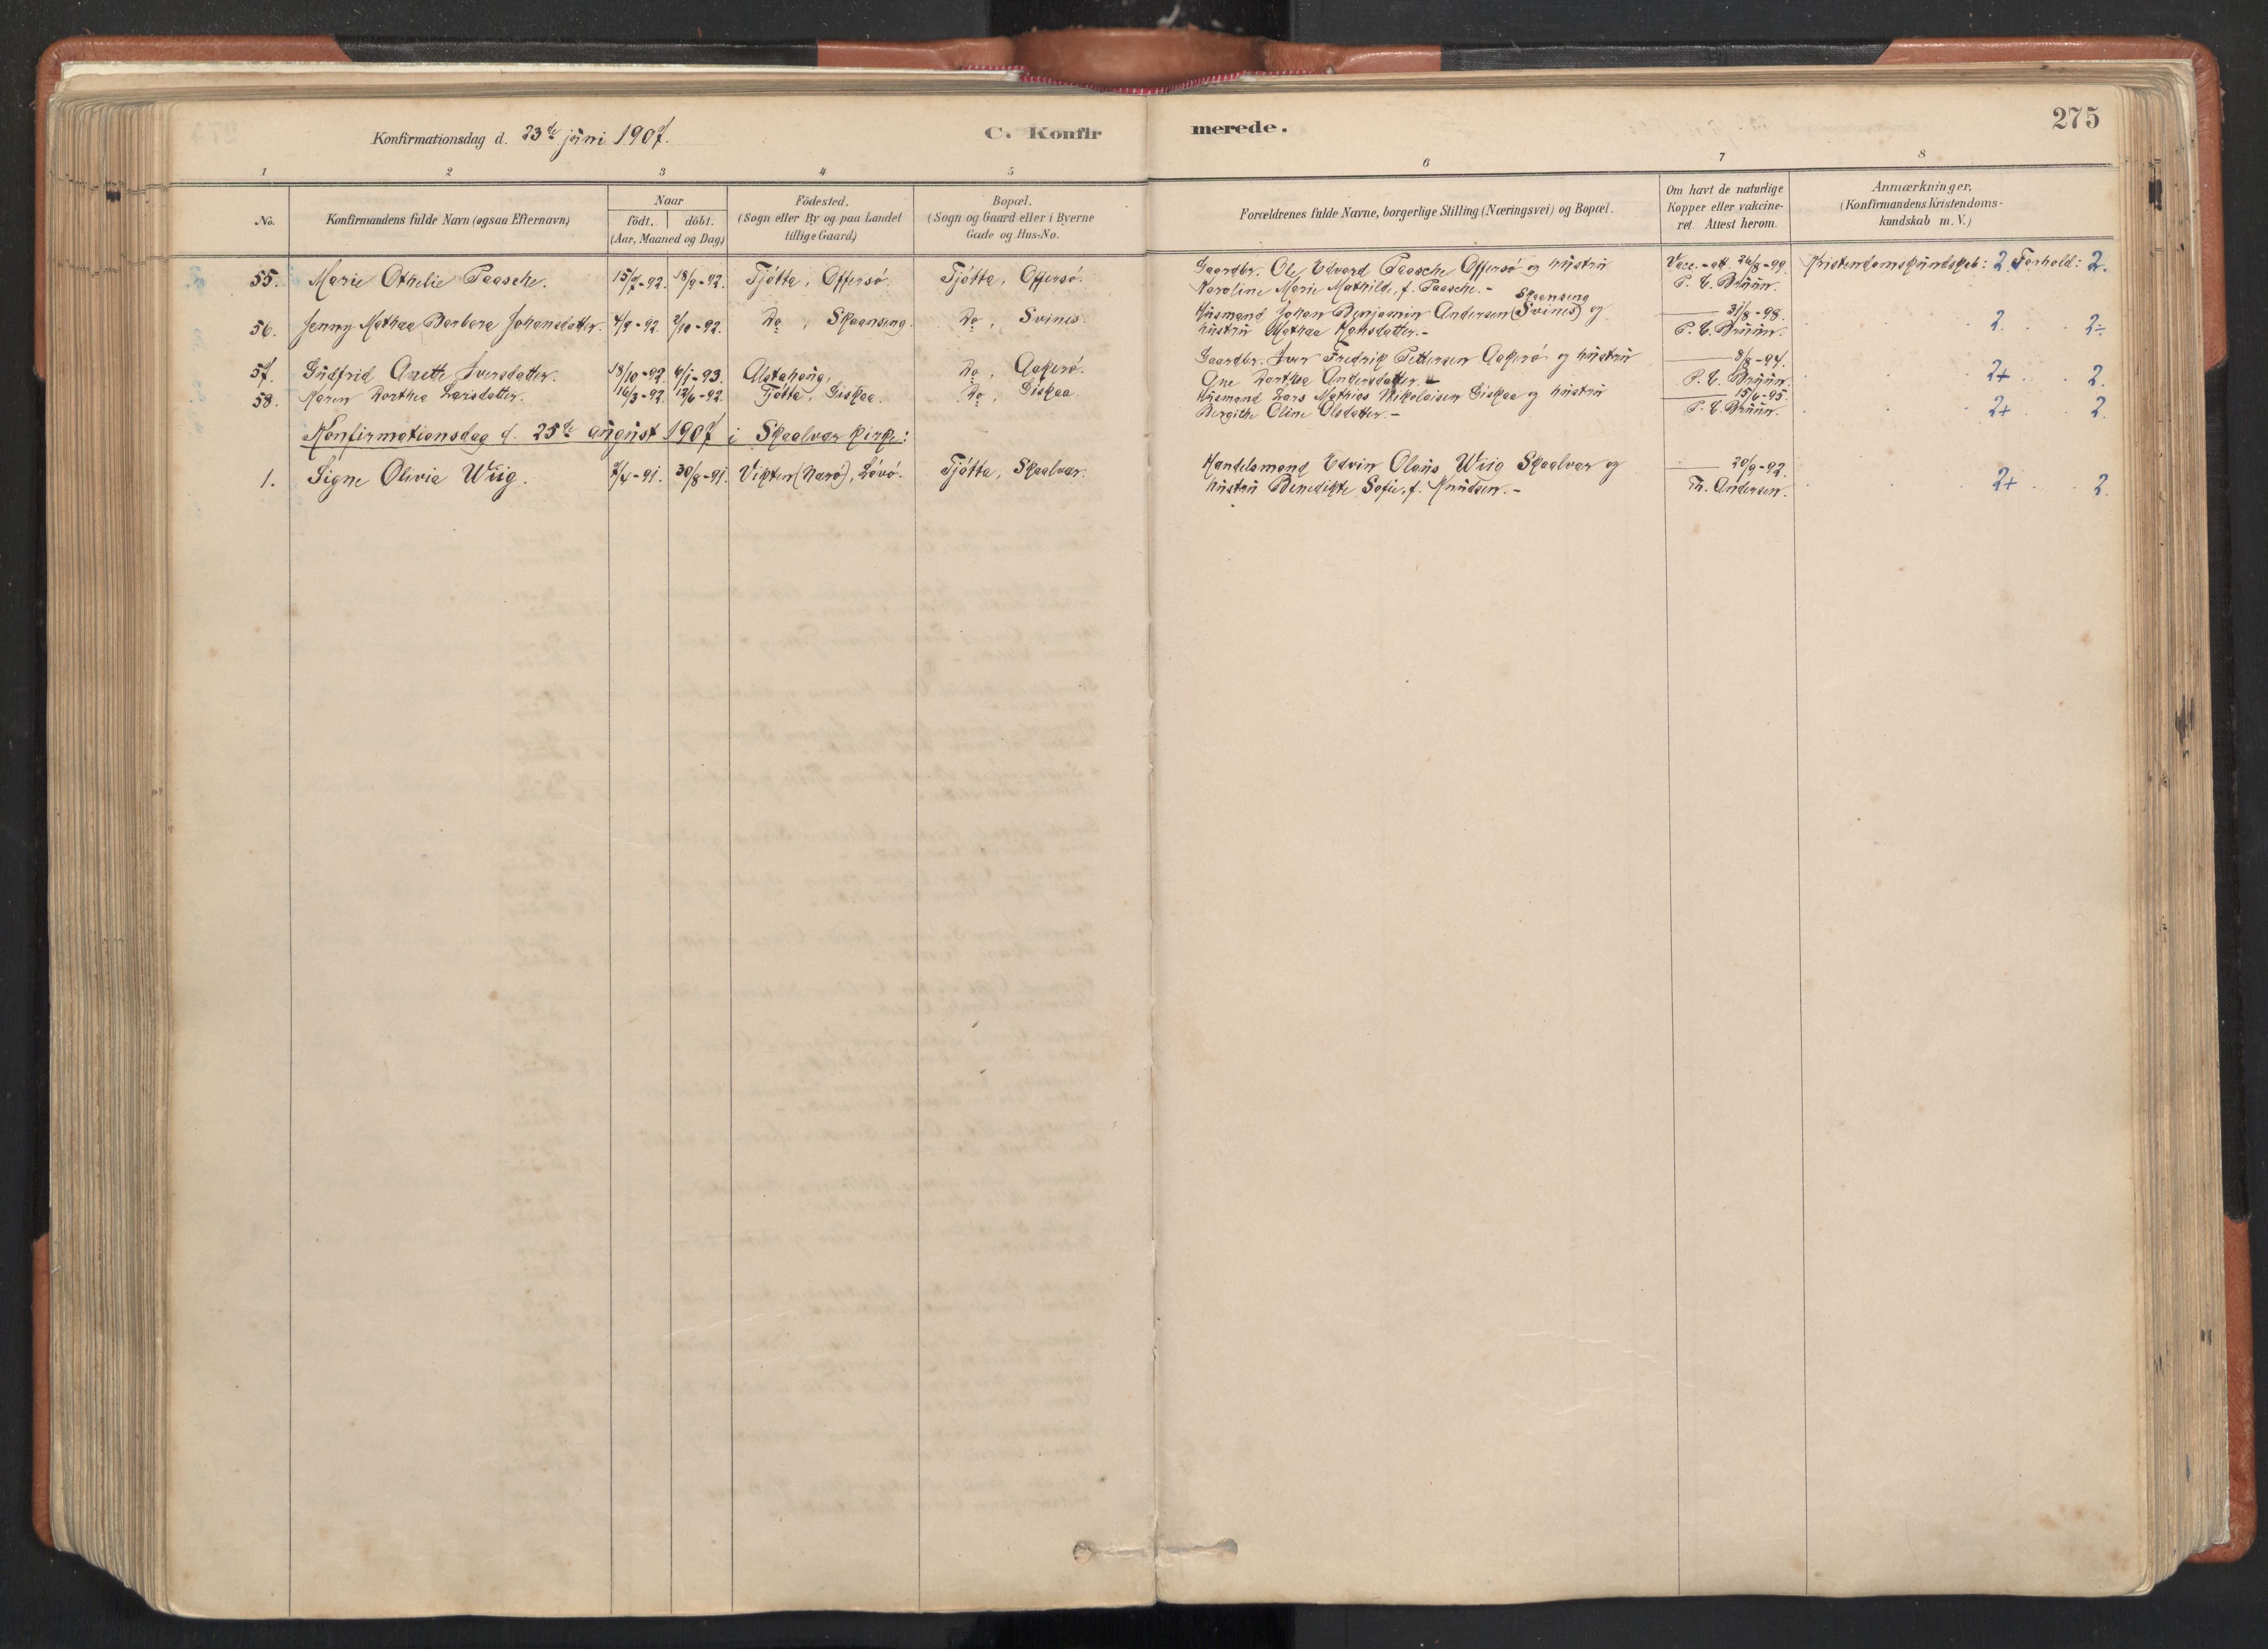 Konfirmationsdag d. 23de juni 1907.
C. Konfir
merede.
275
1 2 3 4 5 6 7 8
No.
Konfirmandens fulde Navn (ogsaa Efternavn)
Naar
födt. döbt.
(Aar, Maaned og Dag)
Födested.
(Sogn eller By og paa Landet
tillige Gaard)
Bopæl.
(Sogn og Gaard eller i Byerne
Gade og Hus-No.
Forældrenes fulde Navne, borgerlige Stilling (Næringsvei) og Bopæl.
Om havt de naturlige
Kopper eller vakcine-
ret. Attest herom.
Anmærkninger.
(Konfirmandens Kristendoms-
kundskab m. V.)
55. Marie Othelie Paasche. 15/7-92. 18/9-92. Tjötta, Offersö. Tjötta, Offersö.
Gaardbr. Ole Edvard Paasche Offersö og hustru
Karoline Marie Mathilde, f. Paasche.-
Vacc.-att. 24/8-99.
P. E. Bruun.
Kristendomskundskab: 2. Forhold: 2.
56. Jenny Mathea Barbara Johansdatter. 4/9-92. 2/10-92. Do, Skaansing. Do, Svines.
Skaansing
Husmand Johan Benjamin Andersen (Svines) og
hustru Mathea Hansdatter.-
31/8-98.
P. E. Bruun.
2. 2÷
57. Gudfrid Anette Iversdatter. 18/10-92. 6/1-93. Alstahaug, Do, Aakerö.
Gaardbr. Iver Fredrik Pettersen Aakerö og hustru
Ane Dorthea Andersdatter.
8/8-94.
P. E. Bruun.
2+ 2.
58. Maren Dorthea Larsdatter. 16/3-92. 12/6-92. Tjötta, Giskaa. Do, Giskaa.
Husmand Lars Mathias Nikolaisen Giskaa og hustru
Bergithe Oline Olsdatter.-
15/6-95.
P. E. Bruun.
2+ 2.
Konfirmationsdag d. 25de august 1907 i Skaalvær kirke:
1. Signe Olivia Wiig. 7/4-91. 30/8-91. Vikten (Nærö), Lövö. Tjötta, Skaalvær.
Handelsmand Edvin Olaus Wiig Skaalvær og
hustru Benedikte Sofie, f. Knudsen.-
20/9-92.
Th. Andersen.
2+ 2.